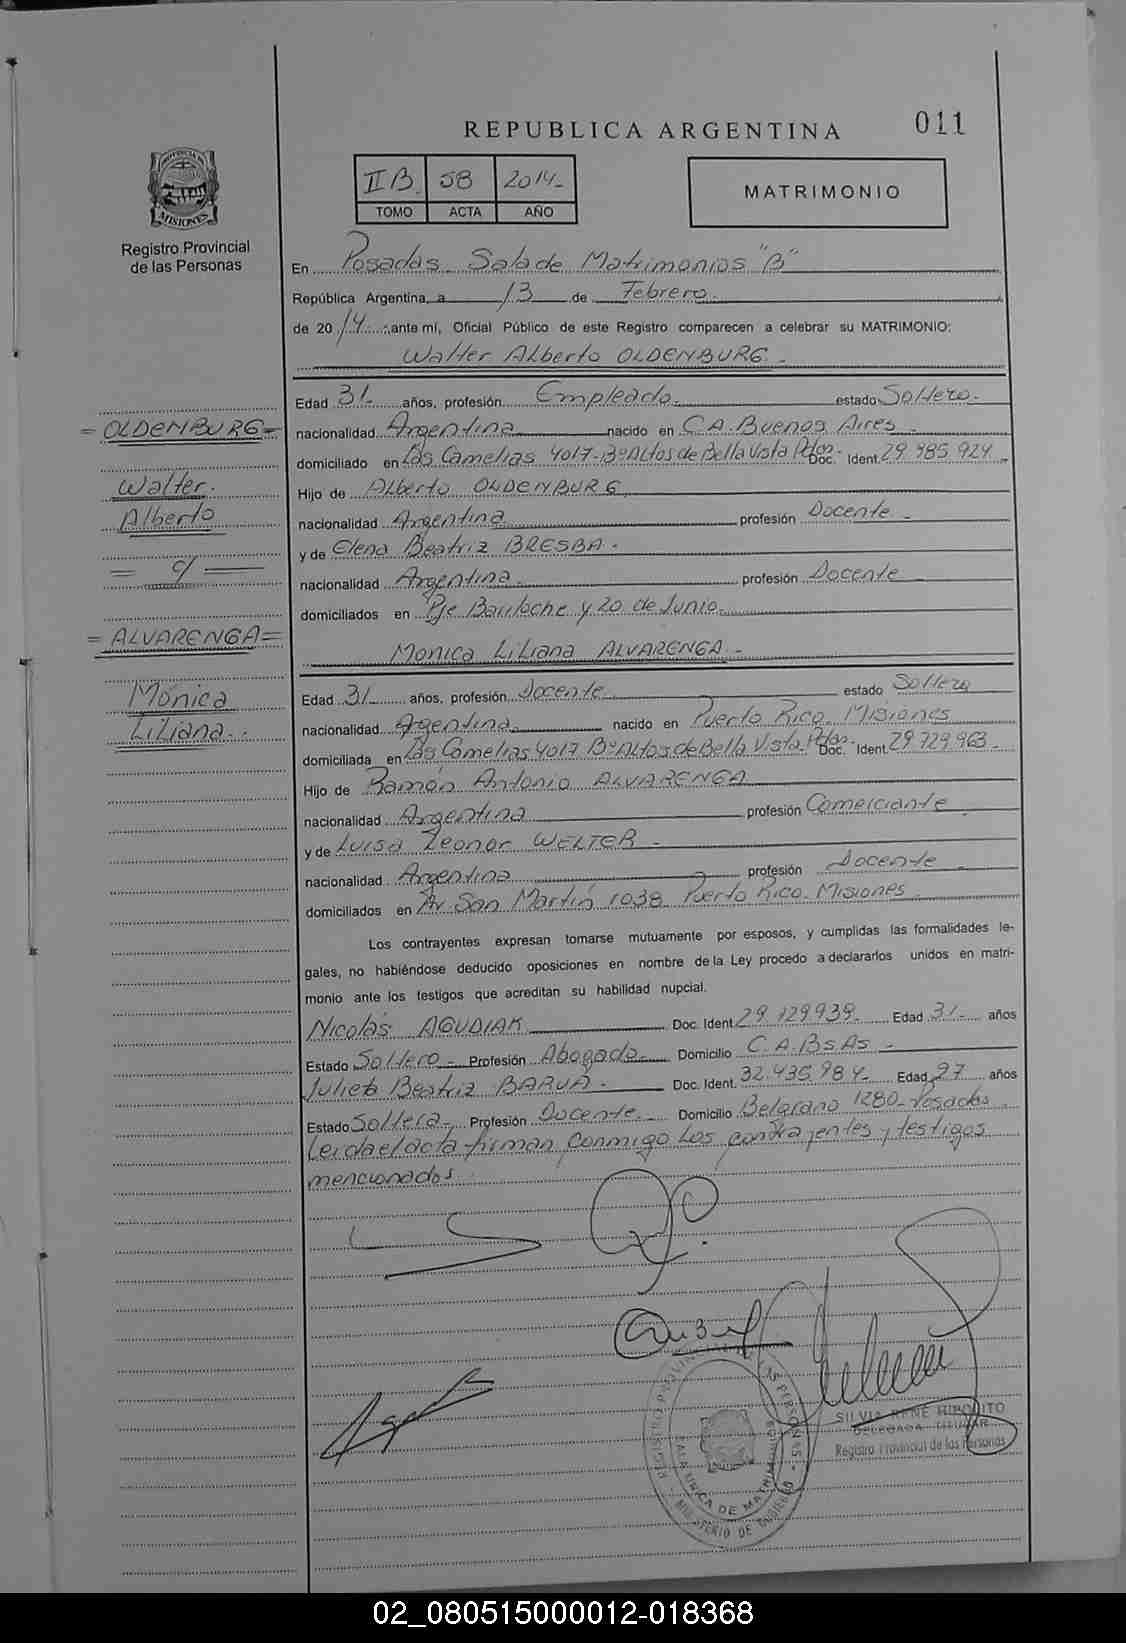 011
REPUBLICA ARGENTINA
II B. 58 2014.-
TOMO ACTA AÑO
MATRIMONIO
PROVINCIA DE
MISIONES
Registro Provincial
de las Personas
En Posadas. Sala de Matrimonios "B"
República Argentina, a 13 de Febrero.
de 2014. ante mí, Oficial Público de este Registro comparecen a celebrar su MATRIMONIO:
Walter Alberto OLDENBURG.-
= OLDENBURG =
Walter.
Alberto
= c/ =
= ALVARENGA =
Mónica
Liliana.-
Edad 31.- años, profesión Empleado. estado Soltero.-
nacionalidad Argentina nacido en C.A. Buenos Aires.-
domiciliado en Las Camelias 4017-Bº Altos de Bella Vista Pdas.- Doc. Ident. 29.985.924.-
Hijo de Alberto OLDENBURG
nacionalidad Argentina profesión Docente.-
y de Elena Beatriz BRESBA.-
nacionalidad Argentina. profesión Docente
domiciliados en Pje Bariloche y 20 de Junio.
Monica Liliana ALVARENGA.-
Edad 31 años, profesión Docente estado Soltera
nacionalidad Argentina. nacido en Puerto Rico. Misiones
domiciliada en Las Camelias 4017 Bº Altos de Bella Vista. Pdas.- Doc. Ident. 29.729.963.-
Hijo de Ramón Antonio ALVARENGA
nacionalidad Argentina profesión Comerciante
y de Luisa Leonor WELTER.-
nacionalidad Argentina profesión Docente.-
domiciliados en Av. San Martín 1038. Puerto Rico. Misiones
Los contrayentes expresan tomarse mutuamente por esposos, y cumplidas las formalidades le-
gales, no habiéndose deducido oposiciones en nombre de la Ley procedo a declararlos unidos en matri-
monio ante los testigos que acreditan su habilidad nupcial.
Nicolás AGUDIAK Doc. Ident. 29.729939.- Edad 31.- años
Estado Soltero.- Profesión Abogado. Domicilio C.A.Bs.As.-
Julieta Beatriz BARUA.- Doc. Ident. 32.435.984.- Edad 27 años
Estado Soltera., Profesión Docente.- Domicilio Belgrano 1280- Posadas
Leida el acta firman conmigo los contrayentes y testigos
mencionados
REGISTRO PROVINCIAL DE LAS PERSONAS
SALA UNICA DE MATRIMONIOS
MINISTERIO DE GOBIERNO
SILVIA RENE HIPOLITO
DELEGADA TITULAR
Registro Provincial de las Personas
02_080515000012-018368